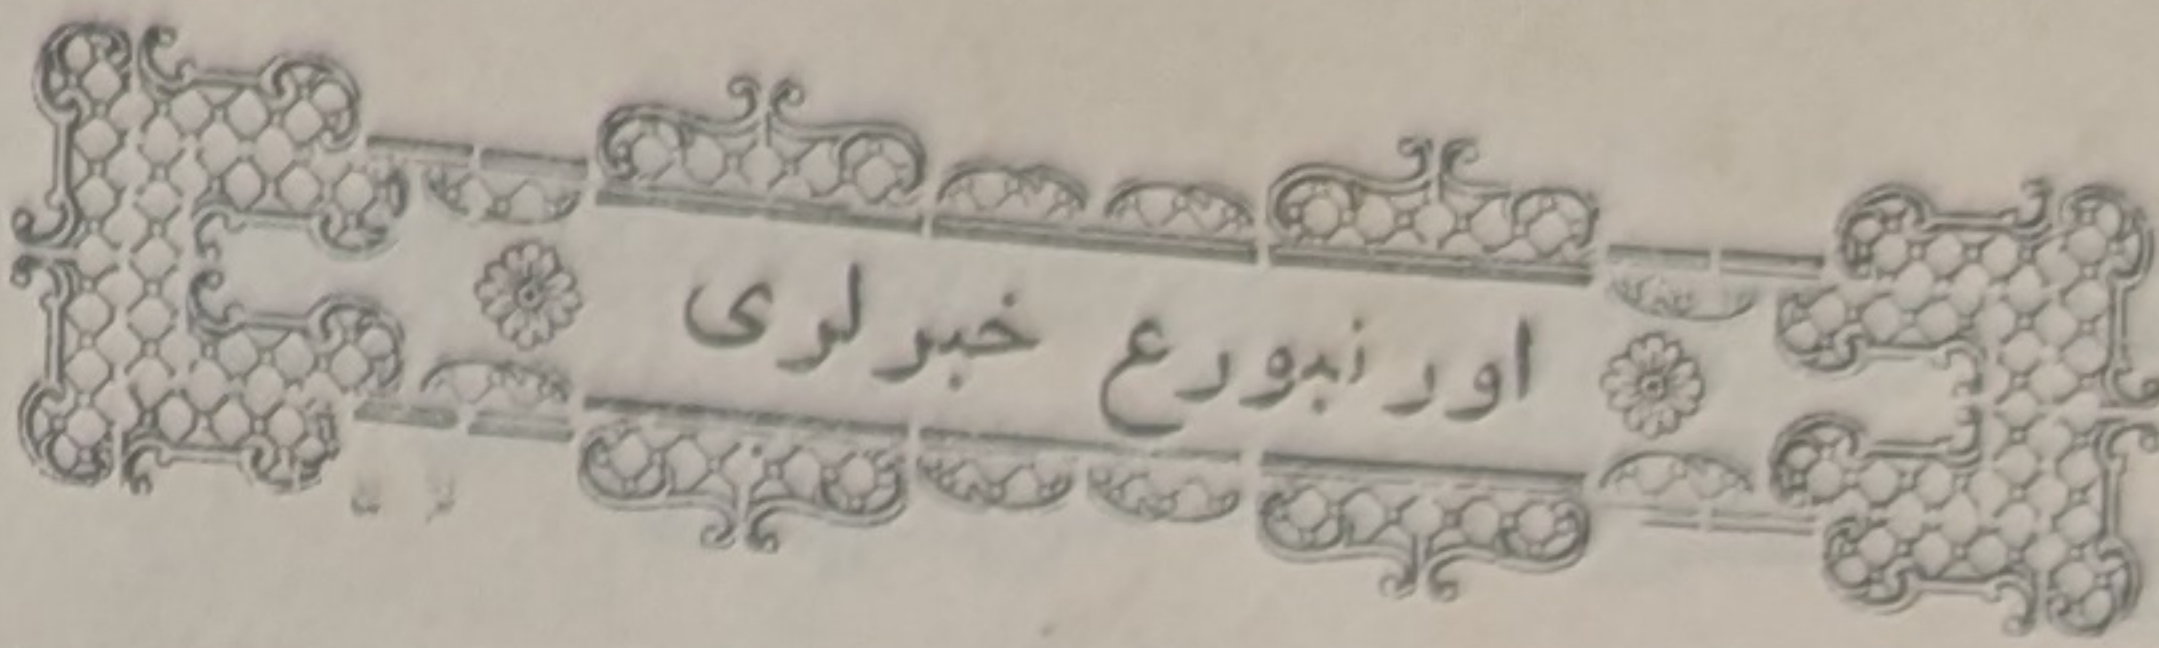 اورنبورع خبرلری